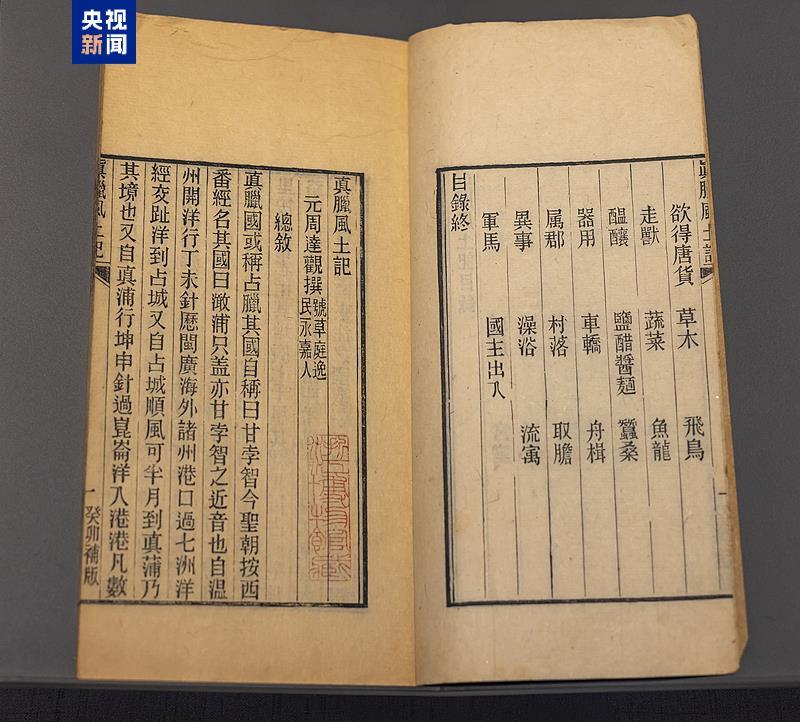 央视
新闻
真臘風土記
欲得唐貨 草木 飛鳥
走獸 蔬菜 魚龍
醞釀 鹽醋醬麵 蠶桑
器用 車轎 舟楫
属郡 村落 取膽
異事 澡浴 流寓
軍馬 國主出入
目錄終
真臘風土記
元周達觀撰 號草庭逸
民永嘉人
總敘
真臘國或稱占臘其國自稱曰甘孛智今聖朝按西
番經名其國曰澉浦只盖亦甘孛智之近音也自温
州開洋行丁未針歷閩廣海外諸州港口過七洲洋
經交趾洋到占城又自占城順風可半月到真蒲乃
其境也又自真浦行坤申針過崑崙洋入港港凡數
真臘風土記 一 癸卯補版